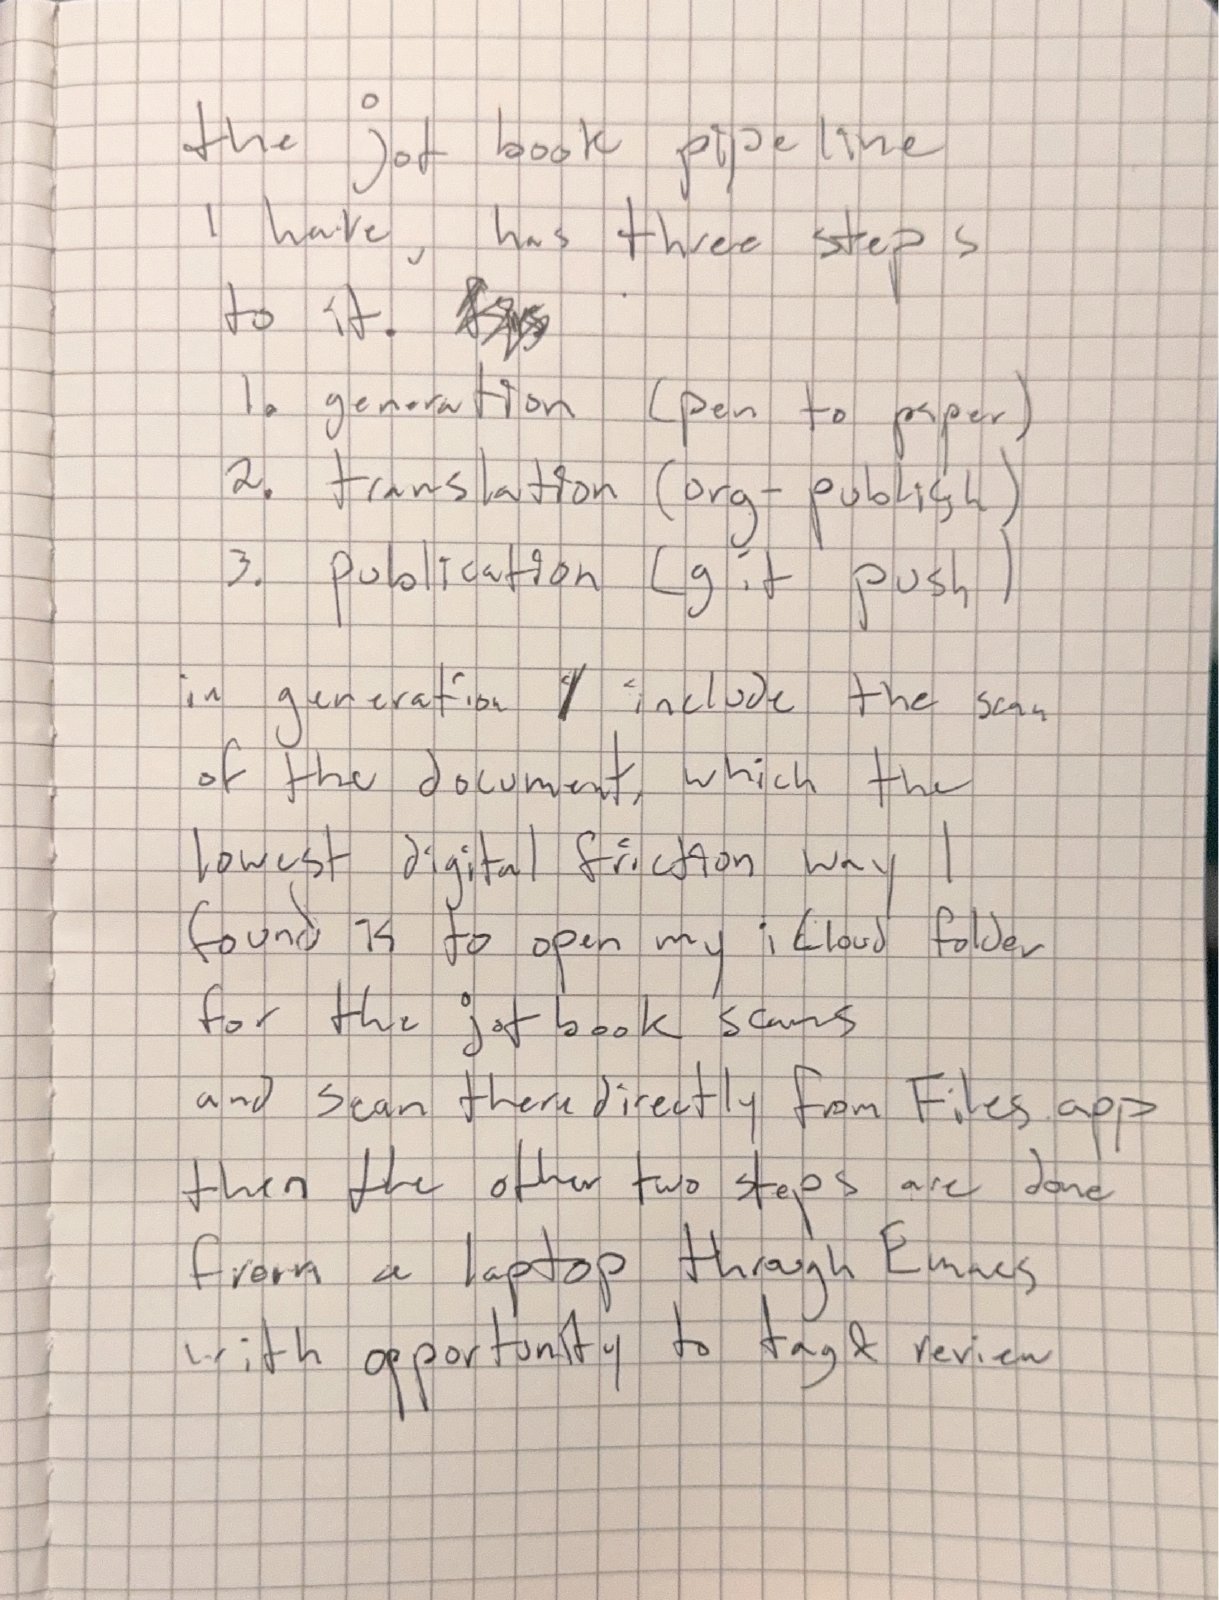 the jot book pipeline
I have, has three steps
to it.
1. generation (pen to paper)
2. translation (org-publish)
3. publication (git push)
in generation I include the scan
of the document, which the
lowest digital friction way I
found is to open my iCloud folder
for the jotbook scans
and scan there directly from Files app
then the other two steps are done
from a laptop through Emacs
with opportunity to tag & review